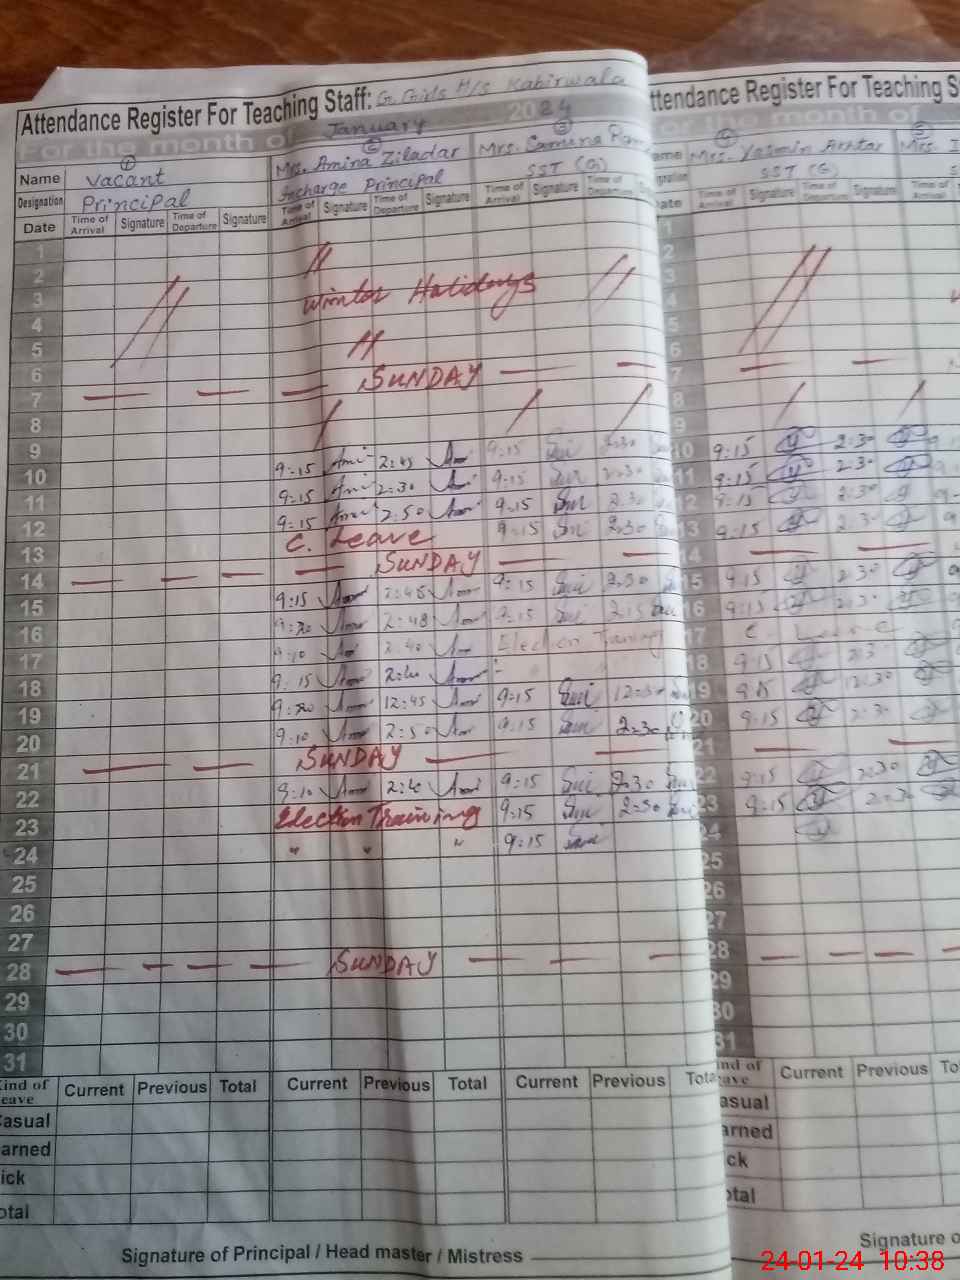 Attendance Register For Teaching Staff: G. Girls H/S Kabirwala
For the month of January 2024
① ② ③
Name Vacant Mrs. Amina Ziladar Mrs. Samina
Designation Principal Incharge Principal SST (G)
Date Time of Arrival Signature Time of Departure Signature Time of Arrival Signature Time of Departure Signature Time of Arrival Signature Time of Departure
1
2
3 Winter Holidays
4
5
6
7 SUNDAY
8
9 9:15 2:45 9:15 2:30
10 9:15 2:30 9:15 2:30
11 9:15 2:50 9:15 2:30
12 C. Leave 9:15 2:30
13
14 SUNDAY
15 9:15 2:45 9:15 2:30
16 9:20 2:45 9:15 2:15
17 9:10 2:40 Election Training
18 9:15 2:40
19 9:20 12:45 9:15 12:30
20 9:10 2:50 9:15 2:30
21 SUNDAY
22 9:10 2:40 9:15 2:30
23 Election Training 9:15 2:30
24 " " " 9:15
25
26
27
28 SUNDAY
29
30
31
Kind of Leave Current Previous Total Current Previous Total Current Previous Total
Casual
Earned
Sick
Total
Signature of Principal / Head master / Mistress
Attendance Register For Teaching S
For the month of
④ ⑤
Name Mrs. Yasmin Akhtar Mrs.
SST (G)
Date Time of Arrival Signature Time of Departure Signature Time of Arrival
1
2
3
4
5
6
7
8
9
10 9:15 2:30
11 9:15 2:30
12 9:15 2:30
13 9:15 2:30
14
15 9:15 2:30
16 9:15 2:30
17 C. Leave
18 9:15 2:30
19 9:15 12:30
20 9:15 2:30
21
22 9:15 2:30
23 9:15 2:30
24
25
26
27
28
29
30
31
Kind of Leave Current Previous
Casual
Earned
Sick
Total
Signature o
24-01-24 10:38